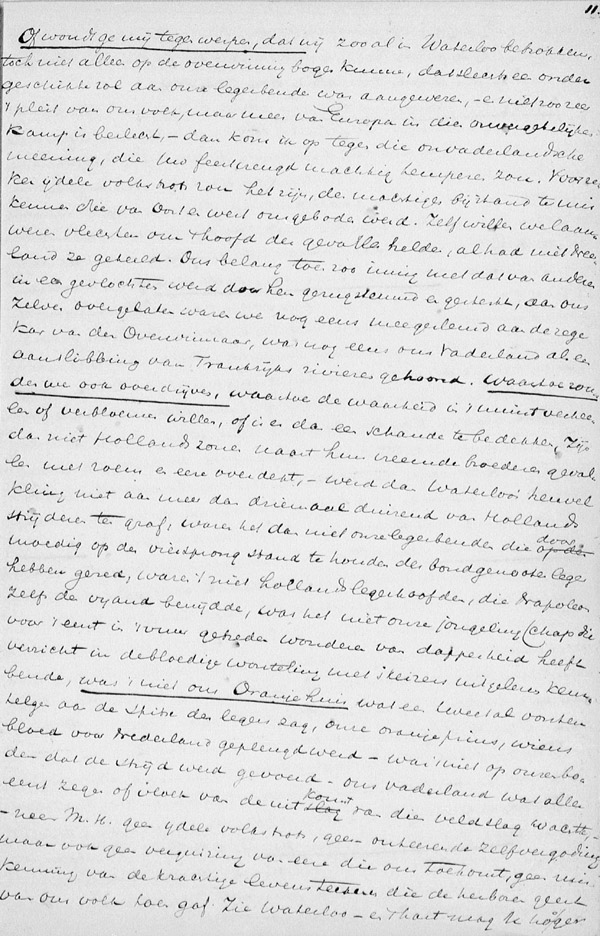 11.
Of wordt ge mij tegen werpen, dat wij zoo al in Waterloo betrokken,
toch niet alleen op de overwinning bogen kunnen, dat slechts een onder
geschikte rol aan onze legerbende was aangewezen, - en niet zoo zeer
't pleit van ons volk, maar meer van Europa in die onvergetelijke
kamp is beslecht, - dan kom ik op tegen die onvaderlandsche
meening, die Uw feestvreugd machtig temperen zou. Voorze
ker ijdele volkstrots zou het zijn, den machtigen bijstand te mis
kennen die van Oost en West omgeboden werd. Zelf willen we laau
weren vlechten om 't hoofd der gevallen helden, al had niet Neer
land ze geteeld. Ons belang toen zoo innig met dat van anderen
in een gevlochten werd door hen gerugsteund en gesterkt, aan ons
zelven overgelaten waren we nog eens meegesleurd aan de zege
kar van den Overwinnaar, was nog eens ons Vaderland als een
aanslibbing van Frankrijks rivieren gehoond. Waartoe zou
den we ook overdrijven, waartoe de waarheid in 't minst verhee
len of verbloemen willen, of is er dan een schande te bedekken? Zijn
dan niet Hollands zonen naast hun vreemde broederen geval
len met roem en eere overdekt, - werd dan Waterloo's heuvel
kling niet aan meer dan driemaal duizend van Hollands
strijderen ten graf, waren het dan niet onze legerbenden die door
moedig op den viersprong stand te houden der bondgenooten leger
hebben gered, waren 't niet Hollands legerhoofden, die Napoleon
zelfs de vijand benijdde, was het niet onze jongeling Chassé die
voor 't eerst in 't vuur getreden wonderen van dapperheid heeft
verricht in de bloedige worsteling met 's keizers uitgelezen keur
bende, was 't niet ons Oranjehuis wat een tweetal vorsten
telgen aan de spits der legers zag, onze oranjeprins, wiens
bloed voor Nederland geplengd werd - was 't niet op onzen bo
dem dat de strijd werd gevoerd - ons vaderland wat allen
eerst zegen of vloek van de uitkomst van die veldslag wachtte -
- neen M.H. geen ijdele volkstrots, geen onteerende zelfvergoding
maar ook geen verguizing van eere die ons toekomt, geen mis
kenning van de krachtige levensteekenen die de herboren geest
van ons volk toen gaf. Zie Waterloo - en 't hart mag U hooger